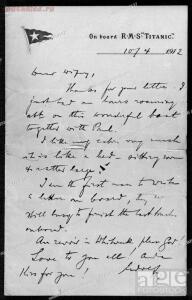 On board R·M·S "TITANIC".
10/4 1912
Dear Wifey,
Thanks for your letter. I
just had an hours roaming
abt on this wonderful boat
together with Paul.
I like my cabin very much
it is like a bed sitting room
& rather large.
I am the first man to write
a letter on board, they are
still busy to finish the last
onboard.
Au revoir, please God!
Love to you all and a
Kiss for you!
age
fotostock